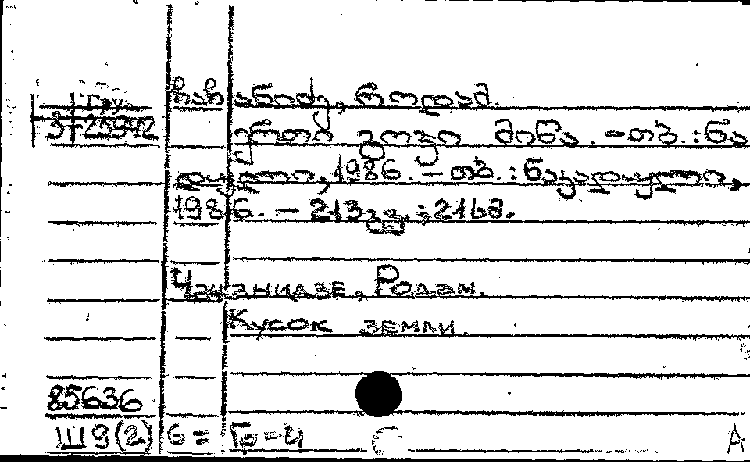 Груз.
3-25942
ჩაჩანიძე, როლამ.
ერთი გოჯი მიწა. - თბ. : ნა
კადული, 1986. - თბ. : ნაკადული,
1986. - 213 გვ. ; 21 სმ.
Чачанидзе, Ролам.
Кусок земли.
85636
Ш9(2) 6= Гр-Ч С А